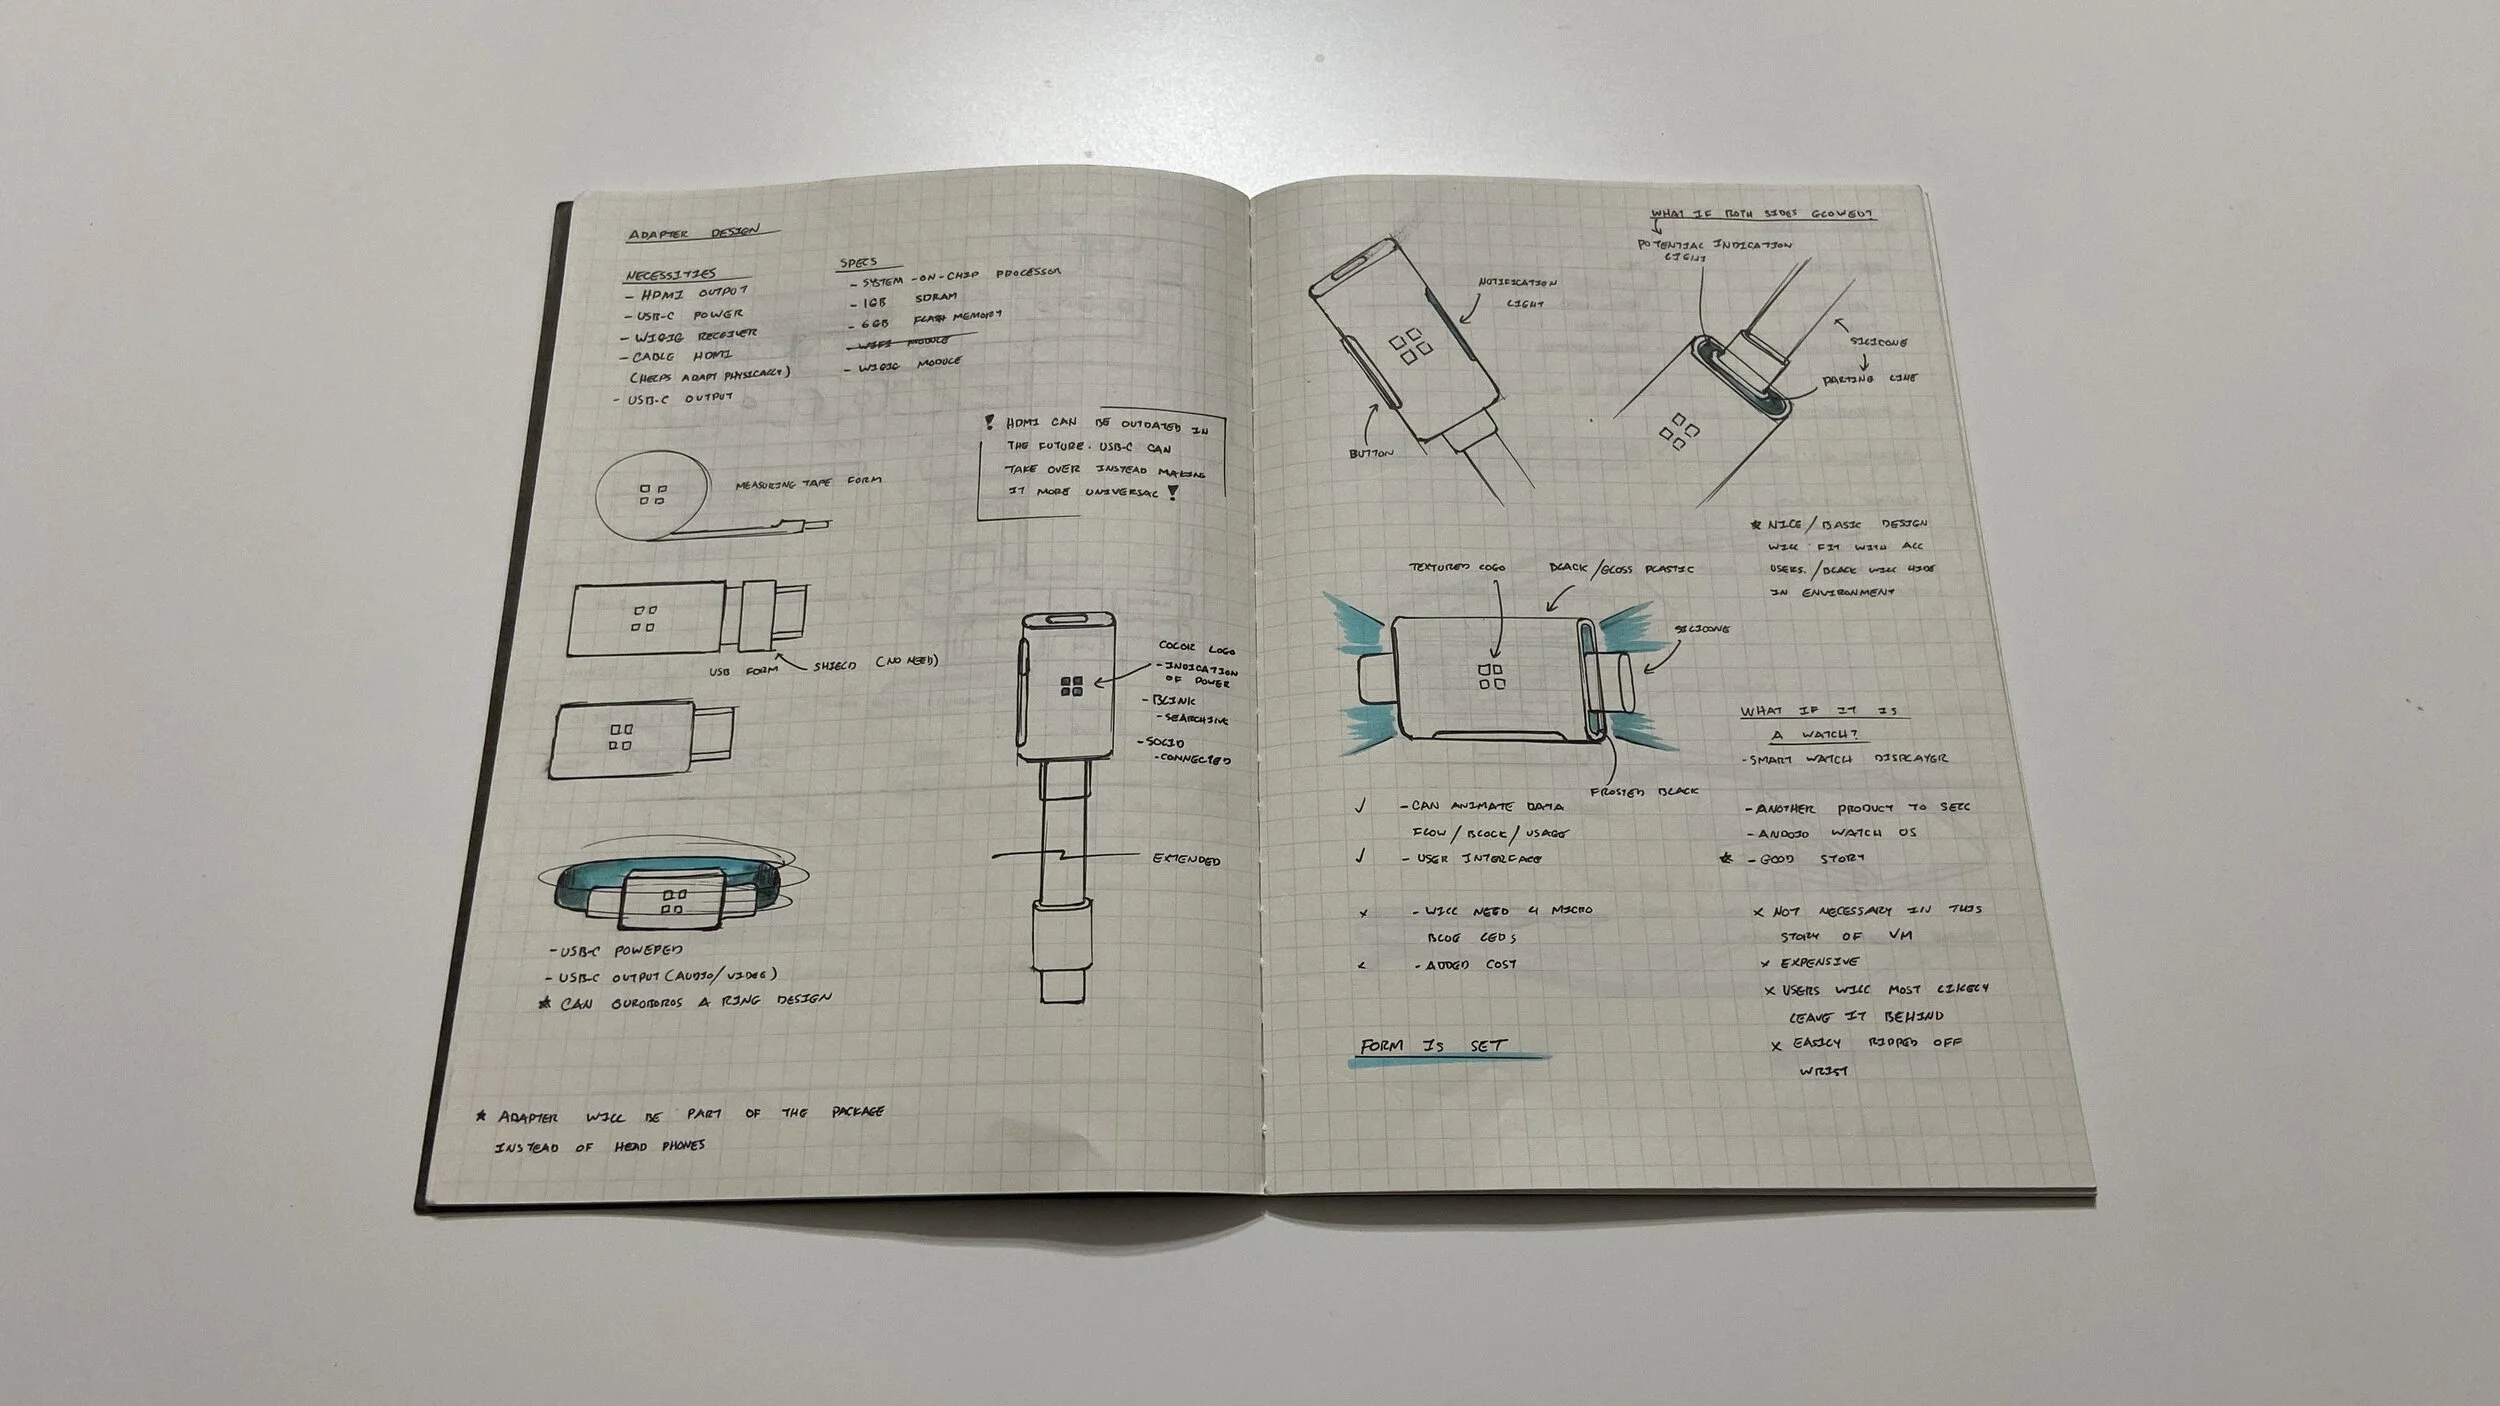 ADAPTER DESIGN
NECESSITIES
- HDMI OUTPUT
- USB-C POWER
- WIGIG RECEIVER
- CABLE HDMI
(HELPS ADAPT PHYSICALLY)
- USB-C OUTPUT
SPECS
- SYSTEM-ON-CHIP PROCESSOR
- 1GB SDRAM
- 6GB FLASH MEMORY
- WIFI MODULE
- WIGIG MODULE
! HDMI CAN BE OUTDATED IN
THE FUTURE. USB-C CAN
TAKE OVER INSTEAD MAKING
IT MORE UNIVERSAL !
MEASURING TAPE FORM
USB FORM
SHIELD (NO NEED)
COLOR LOGO
- INDICATION
OF POWER
- BLINK
- SEARCHING
- SOLID
- CONNECTED
EXTENDED
- USB-C POWERED
- USB-C OUTPUT (AUDIO/VIDEO)
★ CAN OUROBOROS A RING DESIGN
★ ADAPTER WILL BE PART OF THE PACKAGE
INSTEAD OF HEAD PHONES
WHAT IF BOTH SIDES GLOWED?
POTENTIAL INDICATION
LIGHT
NOTIFICATION
LIGHT
BUTTON
SILICONE
PARTING LINE
★ NICE/BASIC DESIGN
WILL FIT WITH ALL
USERS./BLACK WILL HIDE
IN ENVIRONMENT
TEXTURED LOGO
BLACK/GLOSS PLASTIC
SILICONE
FROSTED BLACK
✓ - CAN ANIMATE DATA
FLOW/BLOCK/USAGE
✓ - USER INTERFACE
x - WILL NEED 4 MICRO
BLUE LEDS
x - ADDED COST
FORM IS SET
WHAT IF IT IS
A WATCH?
- SMART WATCH DISPLAYER
- ANOTHER PRODUCT TO SELL
- ANDOID WATCH OS
★ - GOOD STORY
x NOT NECESSARY IN THIS
STORY OF VM
x EXPENSIVE
x USERS WILL MOST LIKELY
LEAVE IT BEHIND
x EASILY RIPPED OFF
WRIST